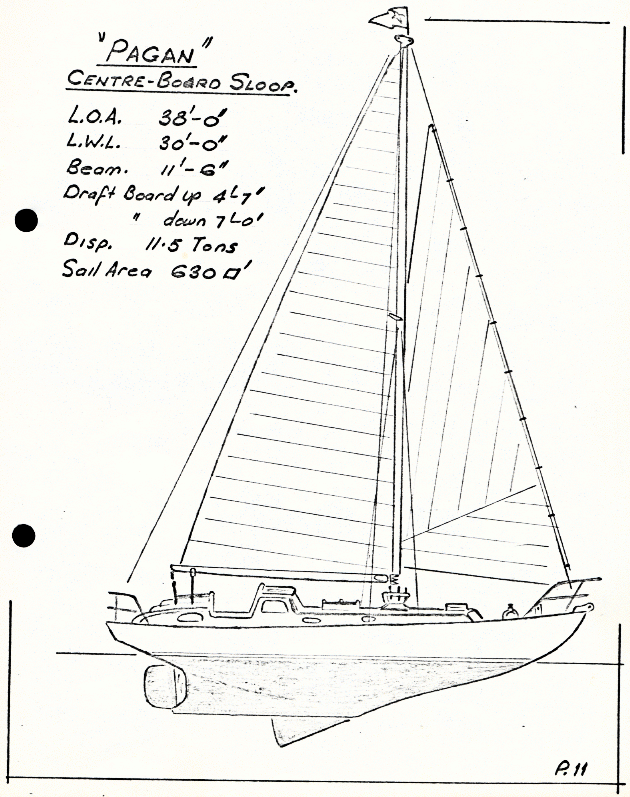 "PAGAN"
CENTRE-BOARD SLOOP.
L.O.A. 38'-0"
L.W.L. 30'-0"
Beam. 11'-6"
Draft Board up 4'-7"
" down 7'-0'
Disp. 11.5 Tons
Sail Area 630 □'
P. 11